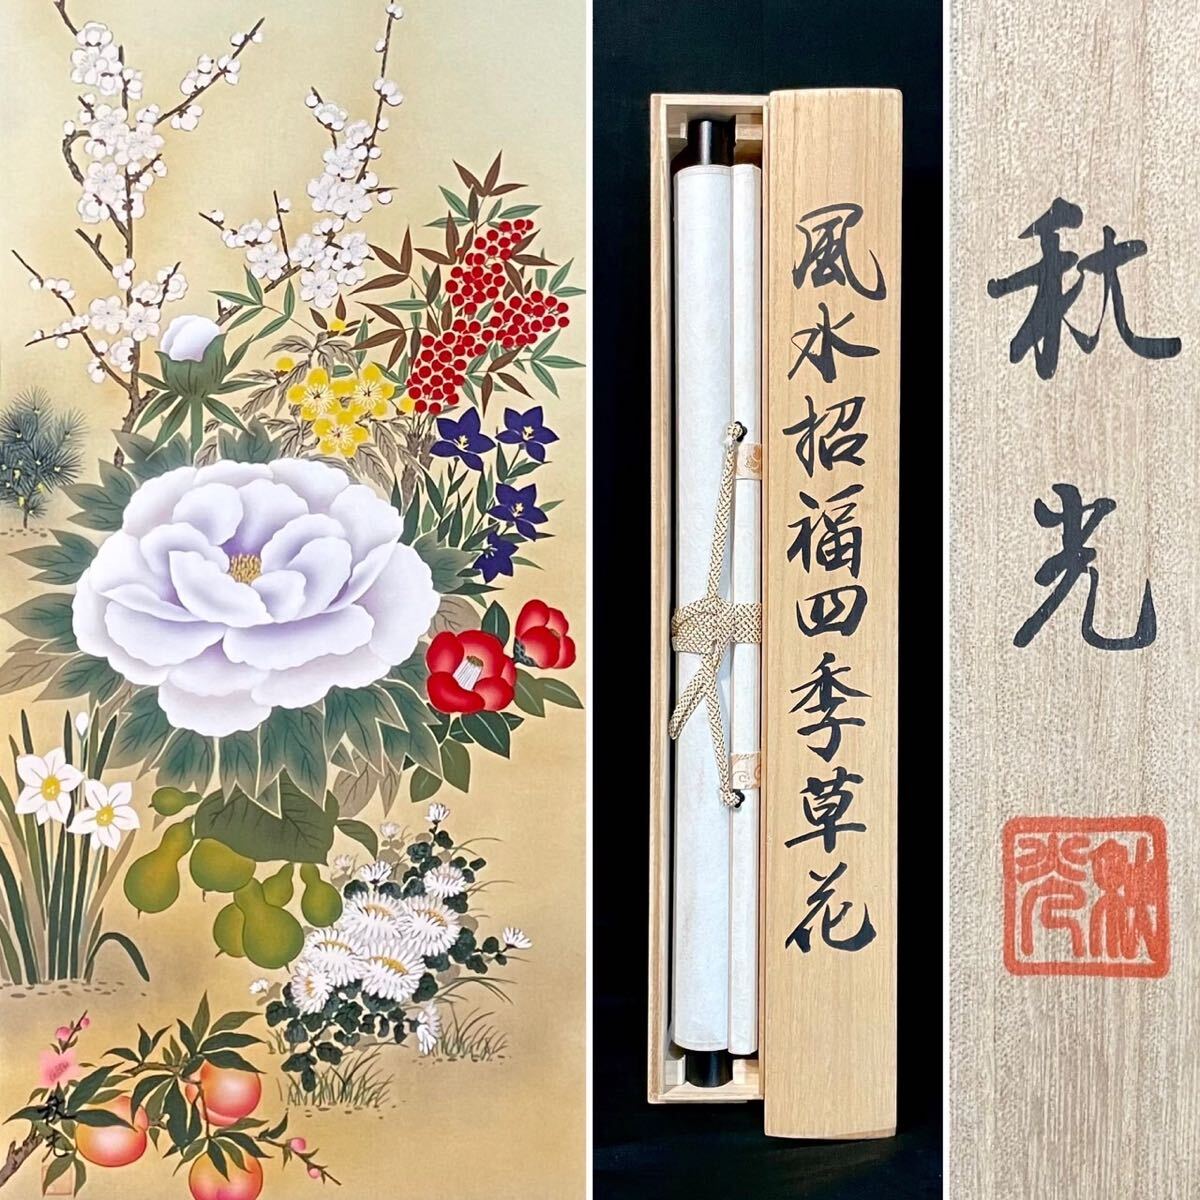 風水招福四季草花
秋光
秋光
秋光